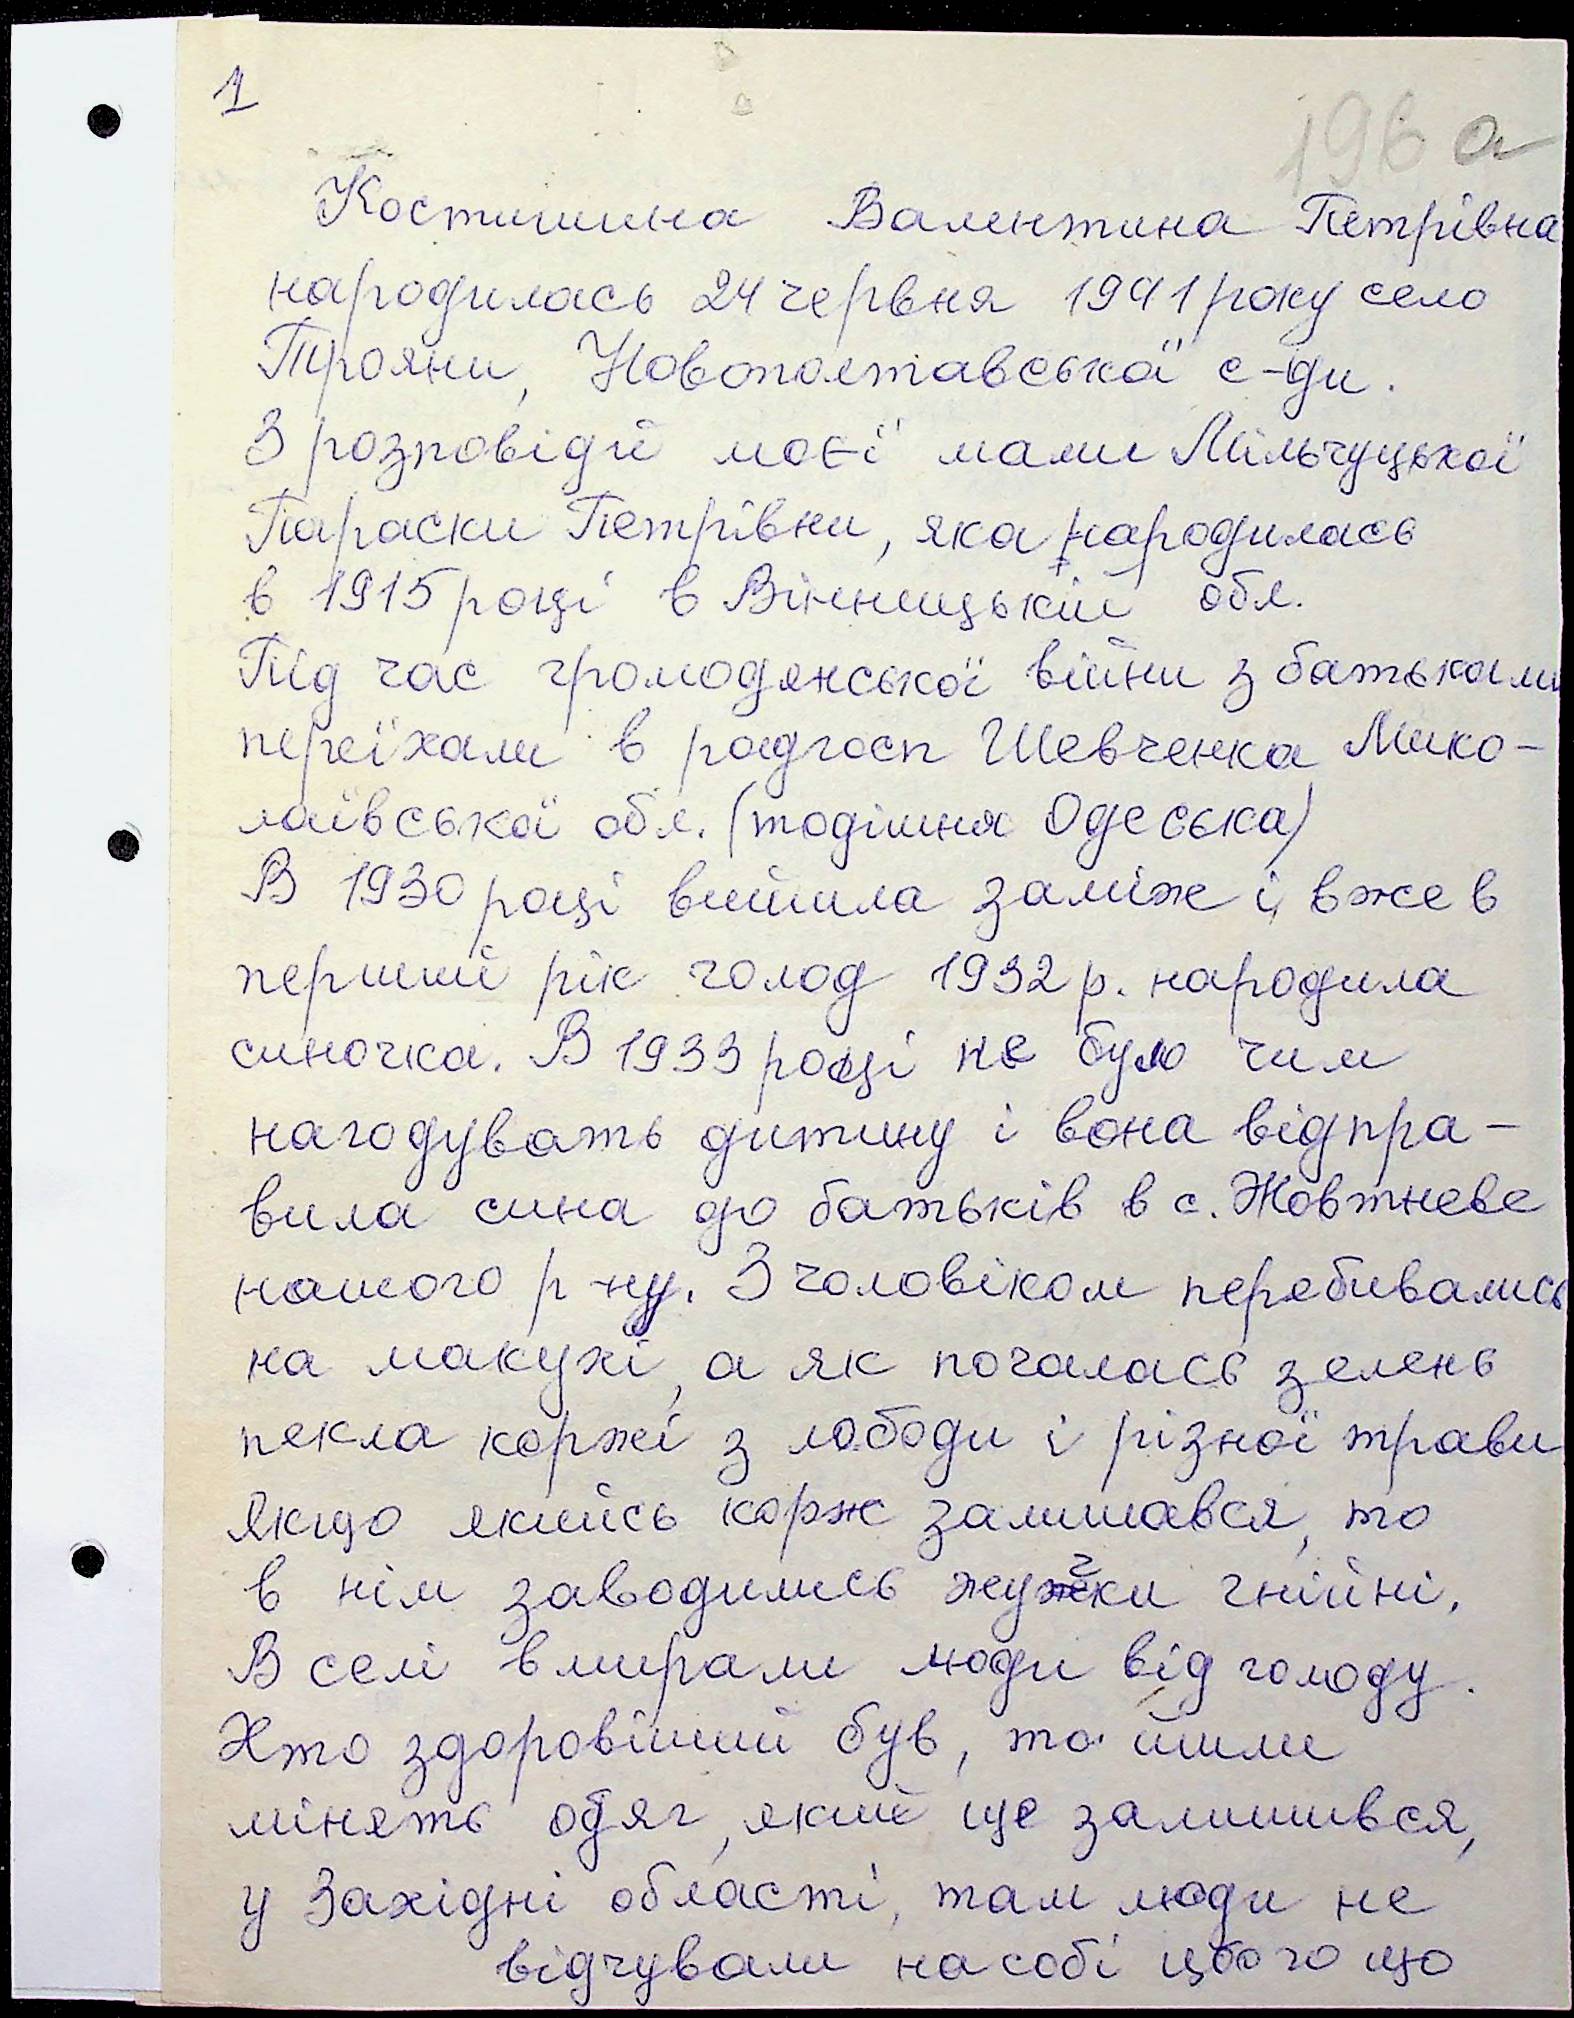 1
196 а
Костишина Валентина Петрівна
народилась 24 червня 1941 року село
Трояни, Новополтавської с-ди.
З розповідй моєї мами Мільчуцької
Параски Петрівни, яка народилась
в 1915 році в Вінницькій обл.
Під час громодянської війни з батьками
переїхали в радгосп Шевченка Мико-
лаївської обл. (тодішня Одеська)
В 1930 році вийшла заміж і вже в
перший рік голод 1932 р. народила
синочка. В 1933 році не було чим
нагодувать дитину і вона відпра-
вила сина до батьків в с. Жовтневе
нашого р-ну. З чоловіком перебивались
на макухі, а як почалась зелень
пекла коржі з лободи і різної трави
Якщо якийсь корж залишався, то
в нім заводились жучки гнійні.
В селі вмирали люди від голоду.
Хто здоровіший був, то йшли
мінять одяг, який ще залишився,
у Західні області, там люди не
відчували на собі цього що